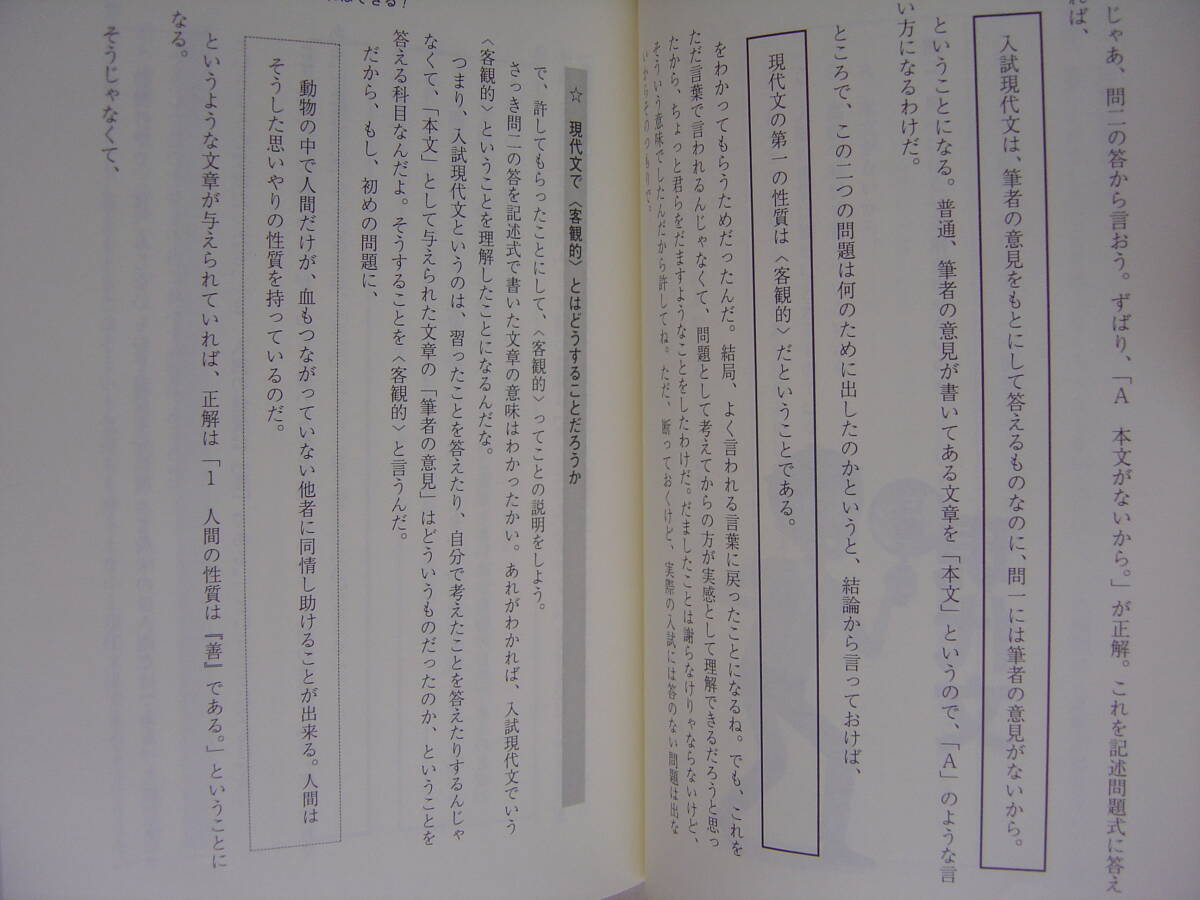 じゃあ、問二の答から言おう。ずばり、「A　本文がないから。」が正解。これを記述問題式に答え
れば、
入試現代文は、筆者の意見をもとにして答えるものなのに、問一には筆者の意見がないから。
ということになる。普通、筆者の意見が書いてある文章を「本文」というので、「A」のような言
い方になるわけだ。
ところで、この二つの問題は何のために出したのかというと、結論から言っておけば、
現代文の第一の性質は〈客観的〉だということである。
をわかってもらうためだったんだ。結局、よく言われる言葉に戻ったことになるね。でも、これを
ただ言葉で言われるんじゃなくて、問題として考えてからの方が実感として理解できるだろうと思っ
たから、ちょっと君らをだますようなことをしたわけだ。だましたことは謝らなけりゃならないけど、
そういう意味でしたんだから許してね。ただ、断っておくけど、実際の入試には答のない問題は出な
いからそのつもりで。
はできる！
☆　現代文で〈客観的〉とはどうすることだろうか
で、許してもらったことにして、〈客観的〉ってことの説明をしよう。
さっき問二の答を記述式で書いた文章の意味はわかったかい。あれがわかれば、入試現代文でいう
〈客観的〉ということを理解したことになるんだな。
つまり、入試現代文というのは、習ったことを答えたり、自分で考えたことを答えたりするんじゃ
なくて、「本文」として与えられた文章の「筆者の意見」はどういうものだったのか、ということを
答える科目なんだよ。そうすることを〈客観的〉と言うんだ。
だから、もし、初めの問題に、
動物の中で人間だけが、血もつながっていない他者に同情し助けることが出来る。人間は
そうした思いやりの性質を持っているのだ。
というような文章が与えられていれば、正解は「1　人間の性質は『善』である。」ということに
なる。
そうじゃなくて、